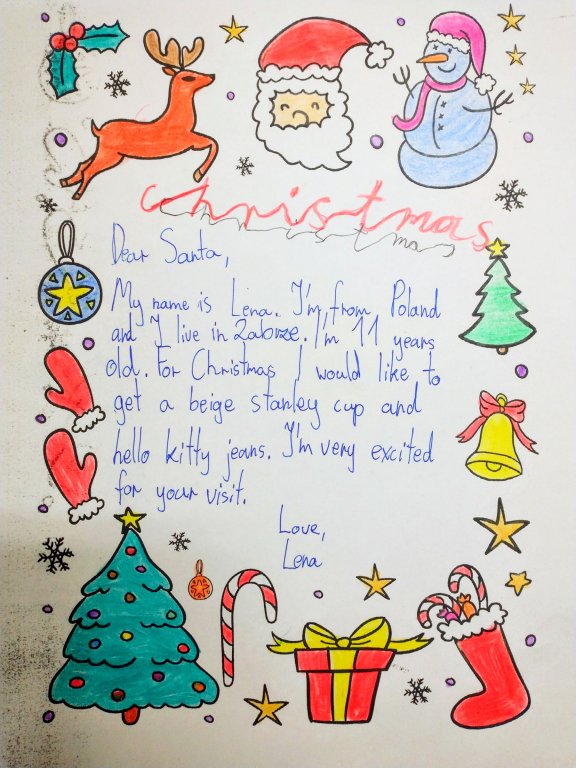 christmas
mas
Dear Santa,
My name is Lena. I'm from Poland
and I live in Zaborze. I'm 11 years
old. For Christmas I would like to
get a beige stanley cup and
hello kitty jeans. I'm very excited
for your visit.
Love,
Lena